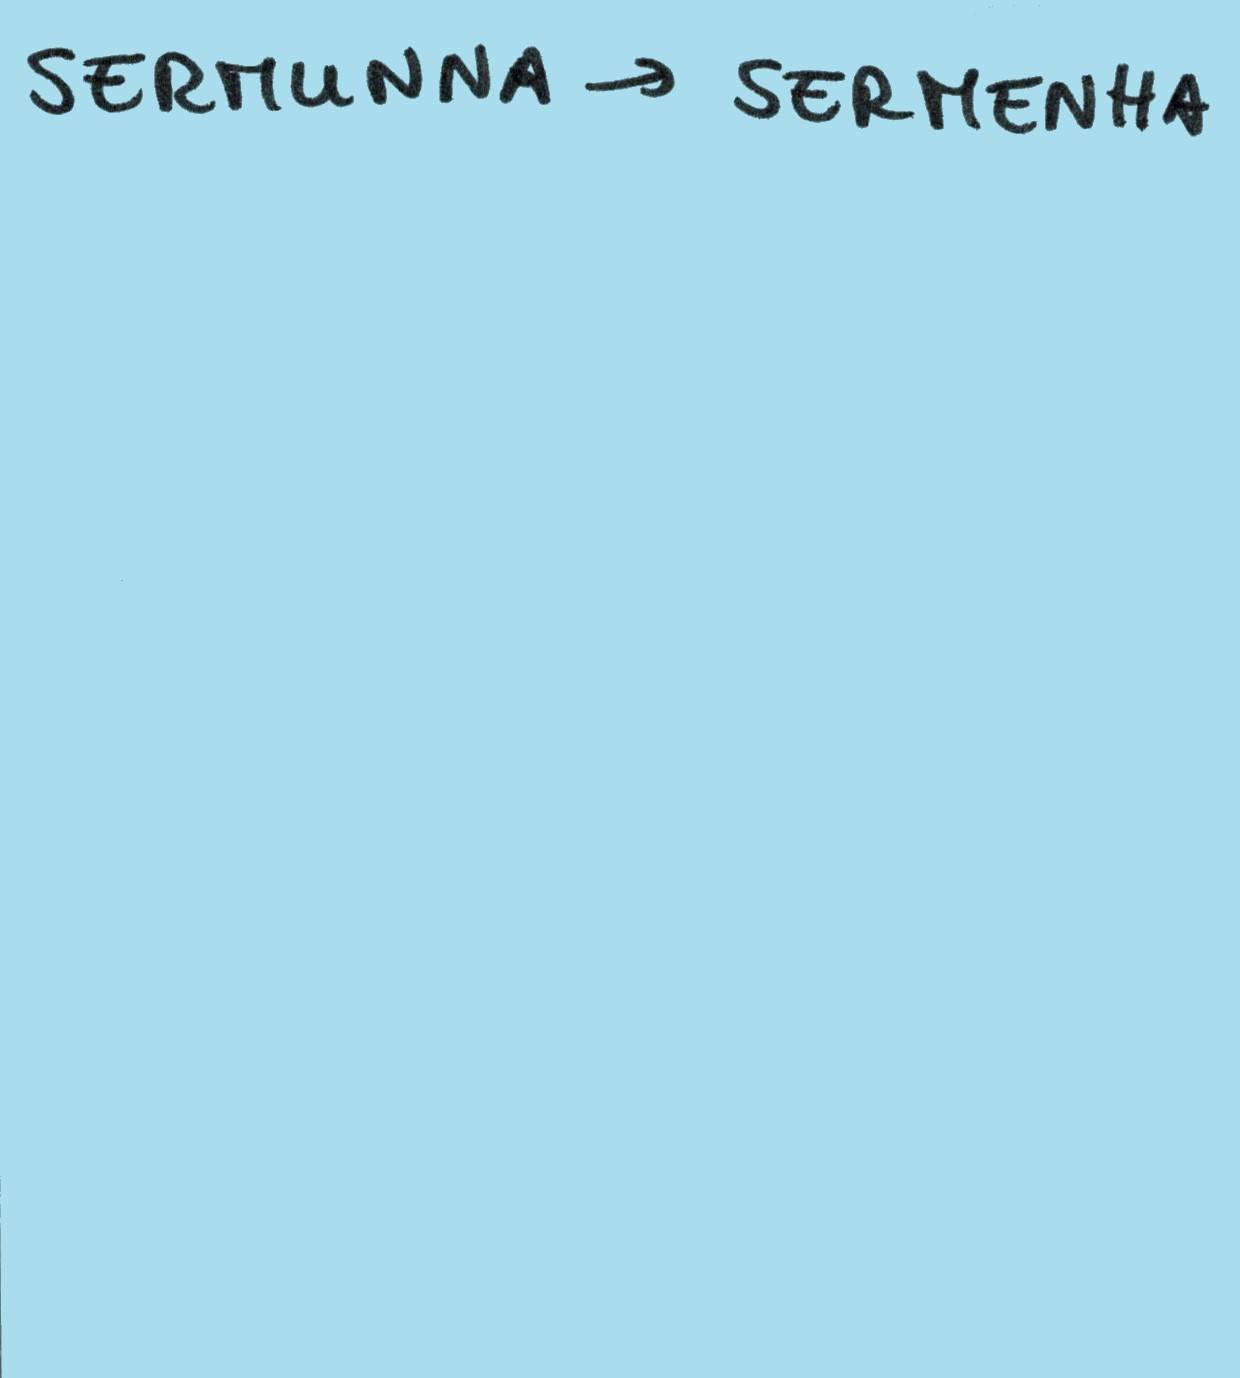 SERMUNNA → SERMENHA